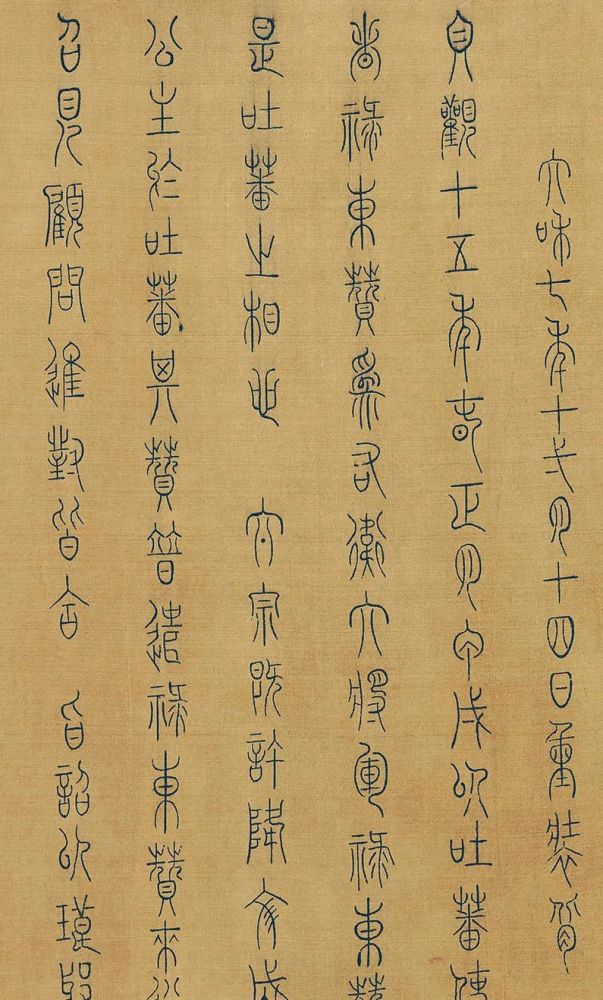 大和七年十一月十四日重裝背
貞觀十五年春正月甲戌以吐蕃使
者祿東贊為右衛大將軍祿東贊
是吐蕃之相也 大宗既許降文成
公主於吐蕃其贊普遣祿東贊來逆
召見顧問進對皆合 旨詔以